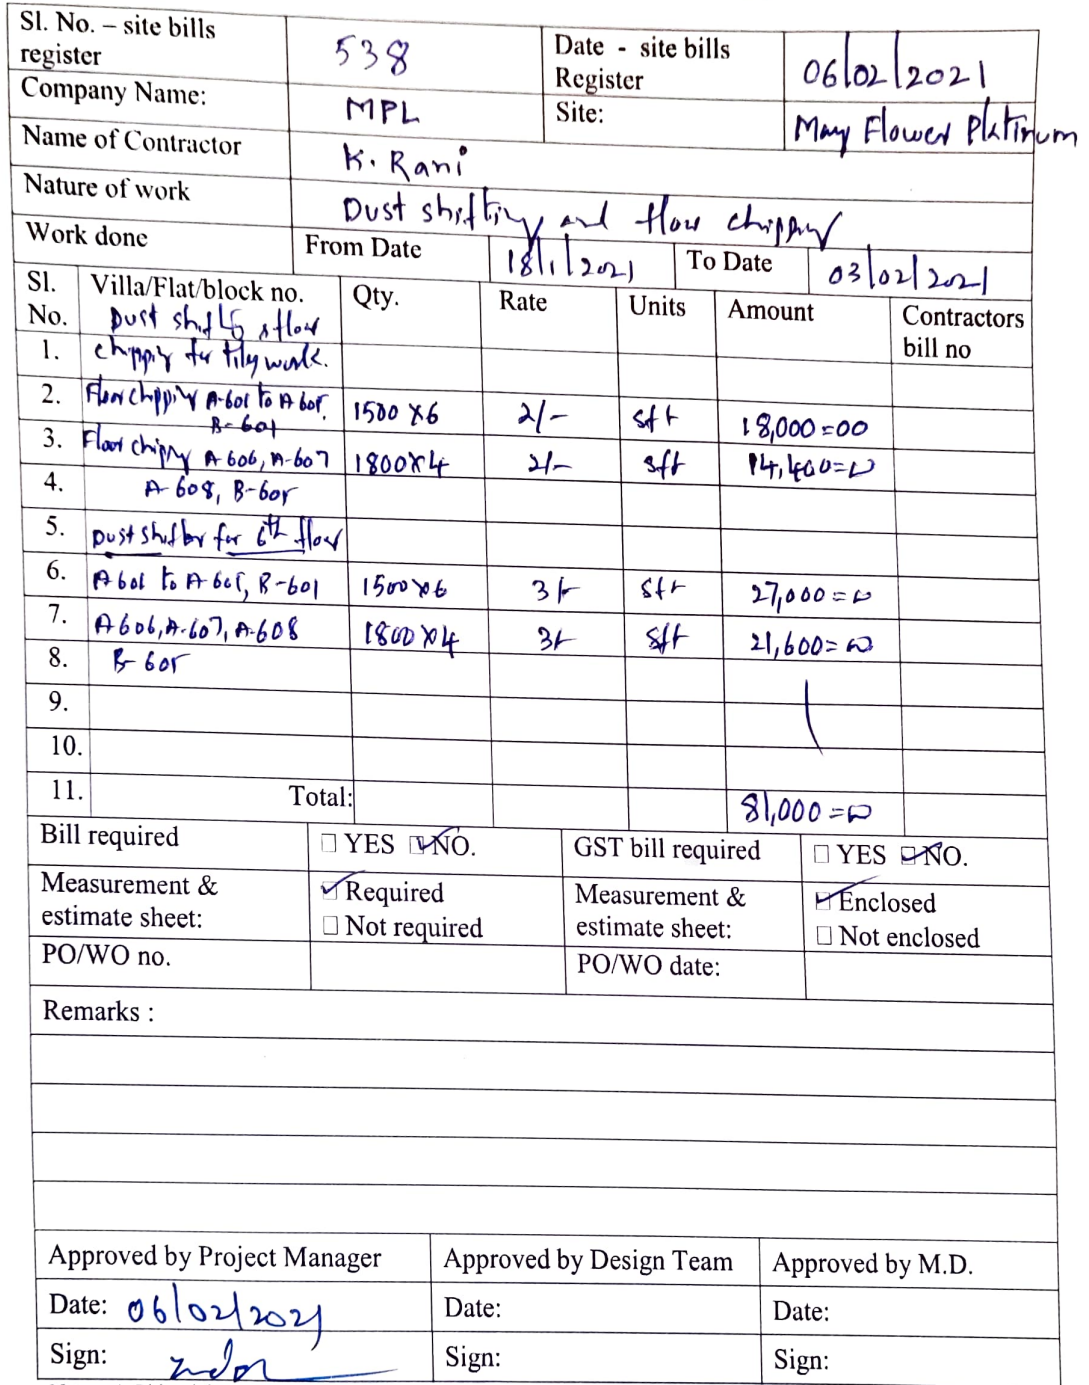 Sl. No. – site bills register 538 Date - site bills Register 06/02/2021
Company Name: MPL Site: May Flower Platinum
Name of Contractor K. Rani
Nature of work Dust shifting and floor chipping
Work done From Date 18/1/2021 To Date 03/02/2021
Sl. No. Villa/Flat/block no. Qty. Rate Units Amount Contractors bill no
Dust shifting & floor
1. chipping for tiles work.
2. Floor chipping A-601 to A 605, 1500 x6 2/- sft 18,000=00
B-601
3. Floor chipping A 606, A-607 1800x4 2/- sft 14,400=00
4. A-608, B-605
5. Dust shifting for 6th floor
6. A 601 to A-605, B-601 1500 x6 3/- sft 27,000=00
7. A606, A-607, A-608 1800 x4 3/- sft 21,600=00
8. B-605
9.
10.
11. Total: 81,000=00
Bill required YES NO. GST bill required YES NO.
Measurement & estimate sheet: Required Measurement & estimate sheet: Enclosed
Not required Not enclosed
PO/WO no. PO/WO date:
Remarks :
Approved by Project Manager Approved by Design Team Approved by M.D.
Date: 06/02/2021 Date: Date:
Sign: Sign: Sign: